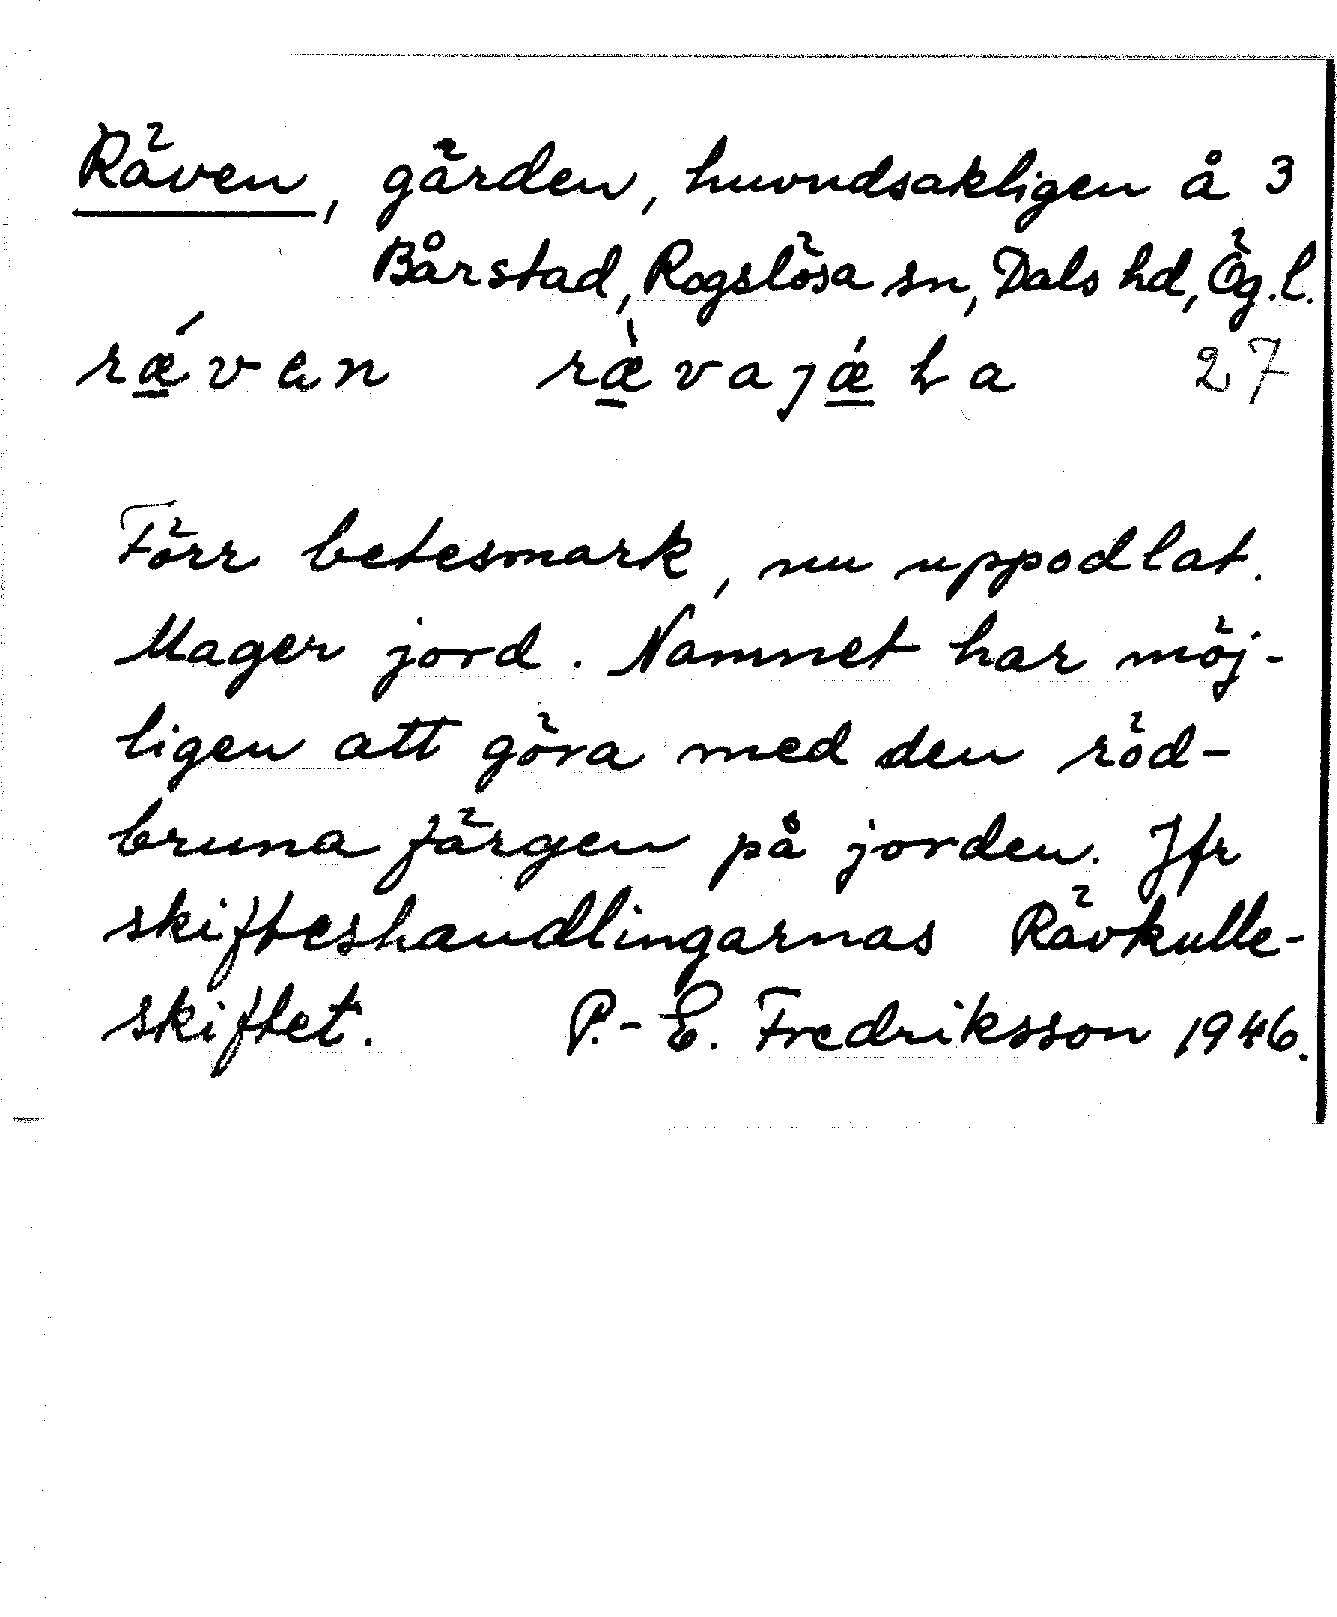 Räven, gärden, huvudsakligen å 3
Bårstad, Rogslösa sn, Dals hd, Ög.l.
rǽvan ræ̀vajǽḷa 27
Förr betesmark, nu uppodlat.
Mager jord. Namnet har möj-
ligen att göra med den röd-
bruna färgen på jorden. Jfr
skifteshandlingarnas Rävkulle-
skiftet. P.-E. Fredriksson 1946.